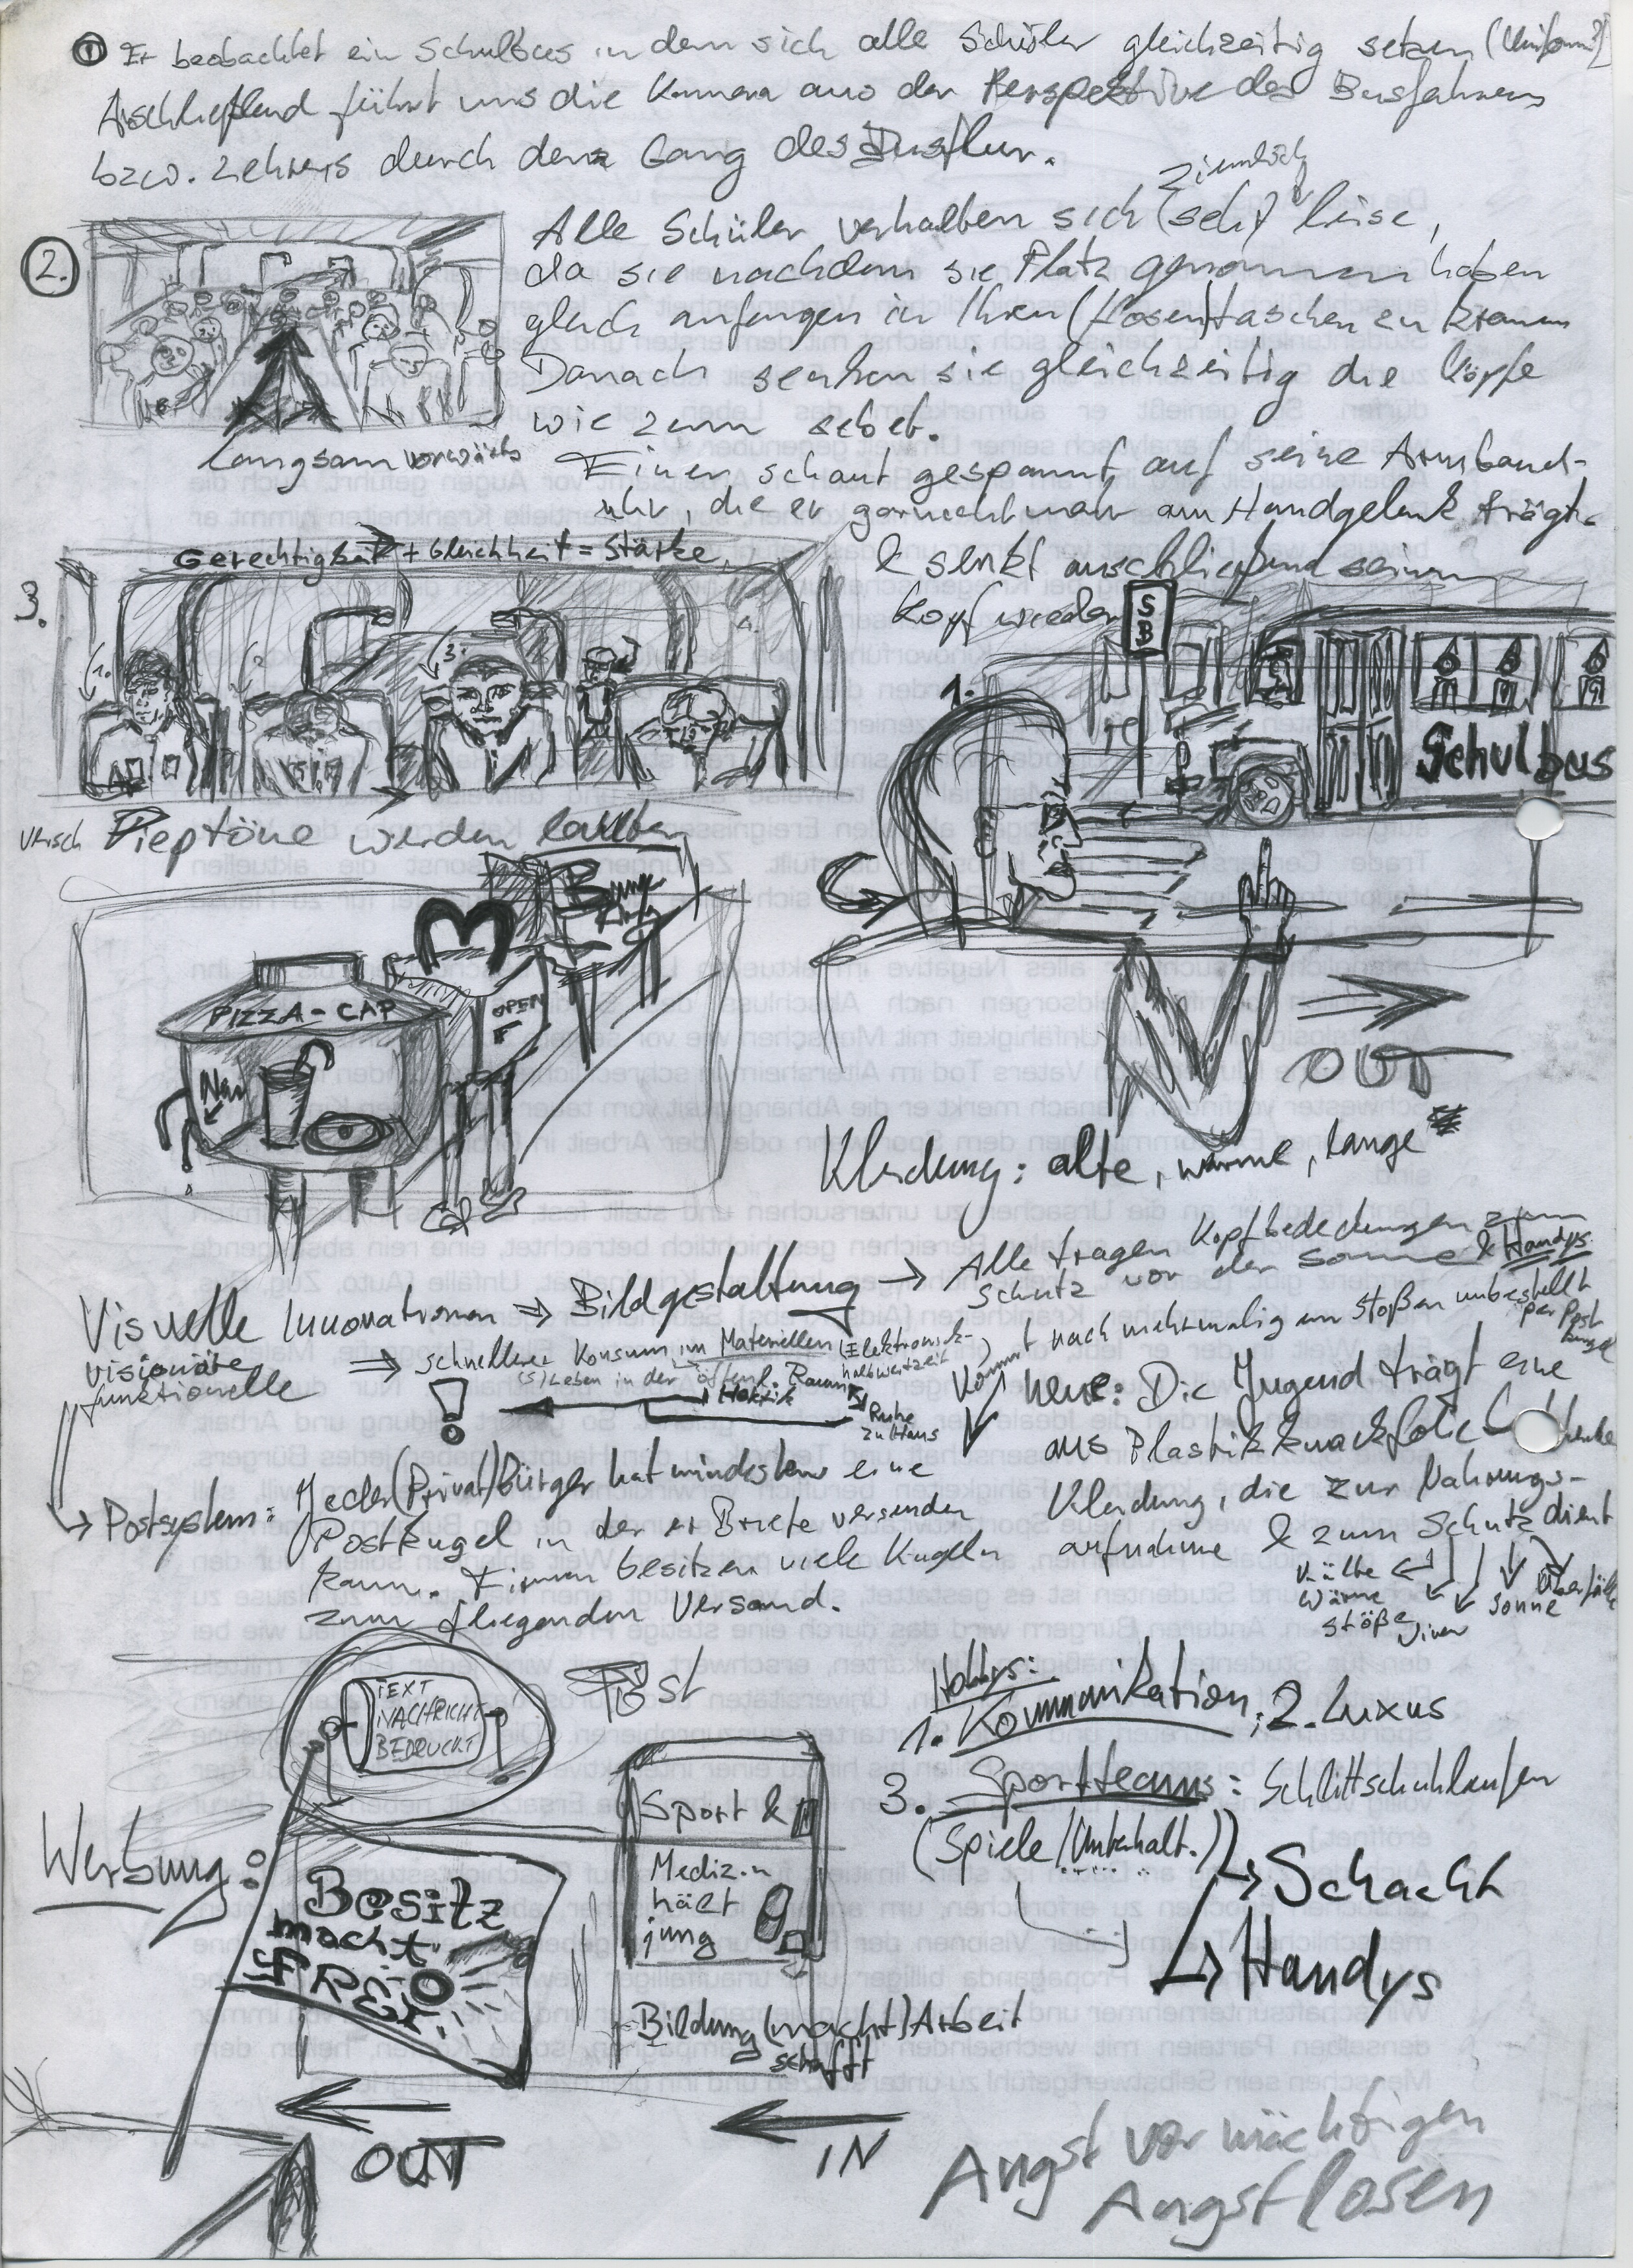 ① Er beobachtet ein Schulbus in dem sich alle Schüler gleichzeitig setzen (Uniform?)
Aschließend führt uns die Kamera aus der Perspektive des Busfahrers
bzw. Lehrers durch den Gang des Busflur.
ziemlich
Alle Schüler verhalten sich (sehr) leise,
2.
da sie nachdem sie Platz genommen haben
gleich anfangen in Ihren (Hosen)taschen zu kramen
Danach senken sie gleichzeitig die Köpfe
wie zum Gebet.
langsam vorwärts
Einer schaut gespannt auf seine Armband-
uhr, die er garnicht mehr am Handgelenk trägt
& senkt anschließend seinen
Kopf wieder
Gerechtigkeit + Gleichheit = Stärke
3.
1.
2.
3.
4.
S
B
1.
Schulbus
Pieptöne werden lauter
PIZZA-CAP
OPEN
OUT
Kleidung: alte, warme, lange
Visuelle Innovationen ⇒ Bildgestaltung → Alle tragen Kopfbedeckungen zum
Schutz vor der Sonne & Handys
visionäre
funktionelle
⇒ schneller Konsum im Materiellen (Elektronik-
halbwertzeit
(S) Leben in der öffentl. Raum
Hektik
Ruhe
zu Haus
!
kommt nach mehrmalig em Stoßen unbestellt
per Post
kugel
neue: Die Jugend trägt eine
aus Plastikknackfolie
Kleidung, die zur Nahrungs-
aufnahme & zum Schutz dient
Kälte
Wärme
Stöße
Viren
Sonne
Überfälle
→ Postsystem: Jeder (Privat)bürger hat mindestens eine
Postkugel in der er Briefe versenden
kann. Firmen besitzen viele Kugeln
zum fliegenden Versand.
TEXT
NACHRICHT
BEDRUCKT
Post
Hobbys:
1. Kommunikation; 2. Luxus
3. Sportteams: Schlittschuhlaufen
(Spiele/Unterhalt.)
→ Schach
→ Handys
Werbung:
Besitz
macht
FREI
Sport &
Medizin
hält
jung
Bildung (macht) Arbeit
schafft
OUT
IN
Angst vor mächtigen
Angstlosen